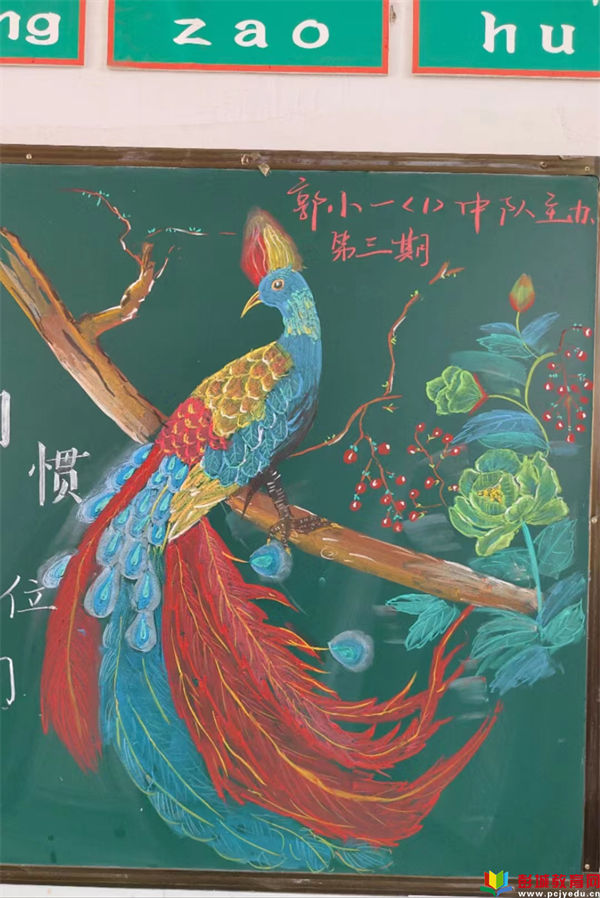 ng
zao
hu
郭小一<1>中队主办
第三期
惯
位
彭城教育网
www.pcjyedu.cn